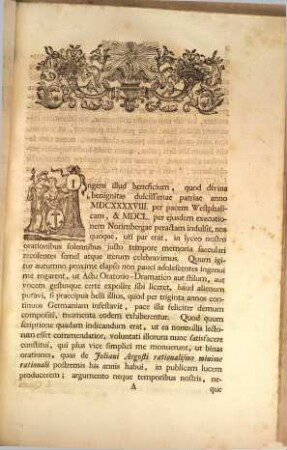 Ingens illud beneficium, quod divina
benignitas dulcissimae patriae anno
MDCXXXXVIII. per pacem Westphali-
cam, & MDCL. per ejusdem executio-
nem Norimbergae peractam indulsit, nos
quoque, uti par erat, in lyceo nostro
orationibus solennibus justo tempore memoria saeculari
recolentes semel atque iterum celebravimus. Quum igi-
tur autumno proxime elapso non pauci adolescentes ingenui
me rogarent, ut Actu Oratorio-Dramatico aut stilum, aut
vocem gestusque certe expolire sibi liceret, haud alienum
putavi, si praecipua belli illius, quod per triginta annos con-
tinuos Germaniam infestavit, pace illa feliciter demum
compositi, momenta eodem exhiberentur. Quod quum
scriptione quadam indicandum erat, ut ea nonnullis lectu
tum esset commendatior, voluntati illorum nunc satisfacere
constitui, qui plus vice simplici me monuerunt, ut binas
orationes, quas de Juliani Augusti rationalismo minime
rationali postremis his annis habui, in publicam lucem
producerem; argumento neque temporibus nostris, ne-
A que